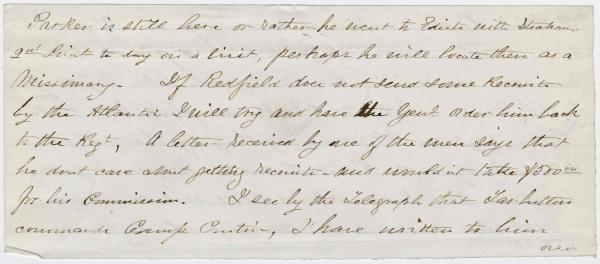 Parker is still here or rather he went to Edisto with Strahan,
Grist to day on a visit, perhaps he will locate them as a
Missionary. If Redfield does not send some Recruits
by the Atlantic I will try and have the Genl. order him back
to the Regt, A letter received by one of the men says that
he dont care about getting recruits - and wouldnt take $500 00
for his Commission. I see by the Telegraph that
commands Camp Curtin, I have written to him
over